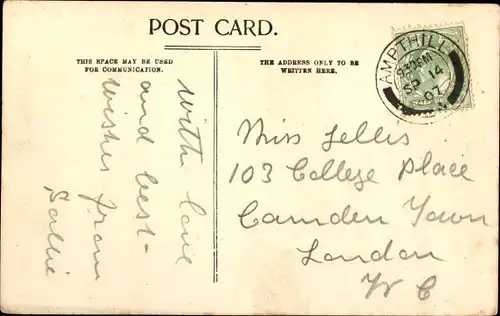 POST CARD.
THIS SPACE MAY BE USED
FOR COMMUNICATION.
THE ADDRESS ONLY TO BE
WRITTEN HERE.
AMPTHILL
SP 14
07
With love
and best-
wishes from
Sallie
Miss Lellis
103 College Place
Camden Town
London
W C